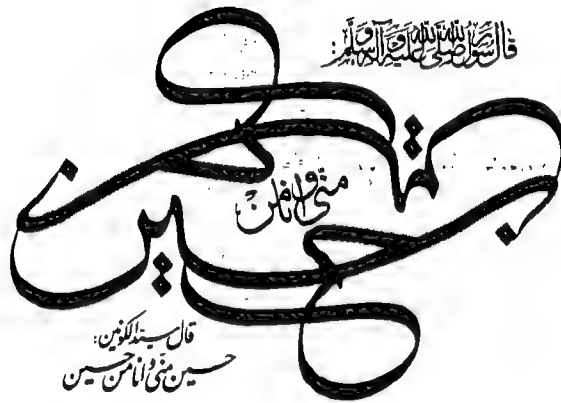 قال رسول الله صلی الله علیه و آله وسلم:
حسین
منی و انا من
حسین
قال سید الکونین:
حسین منّی و انا من حسین